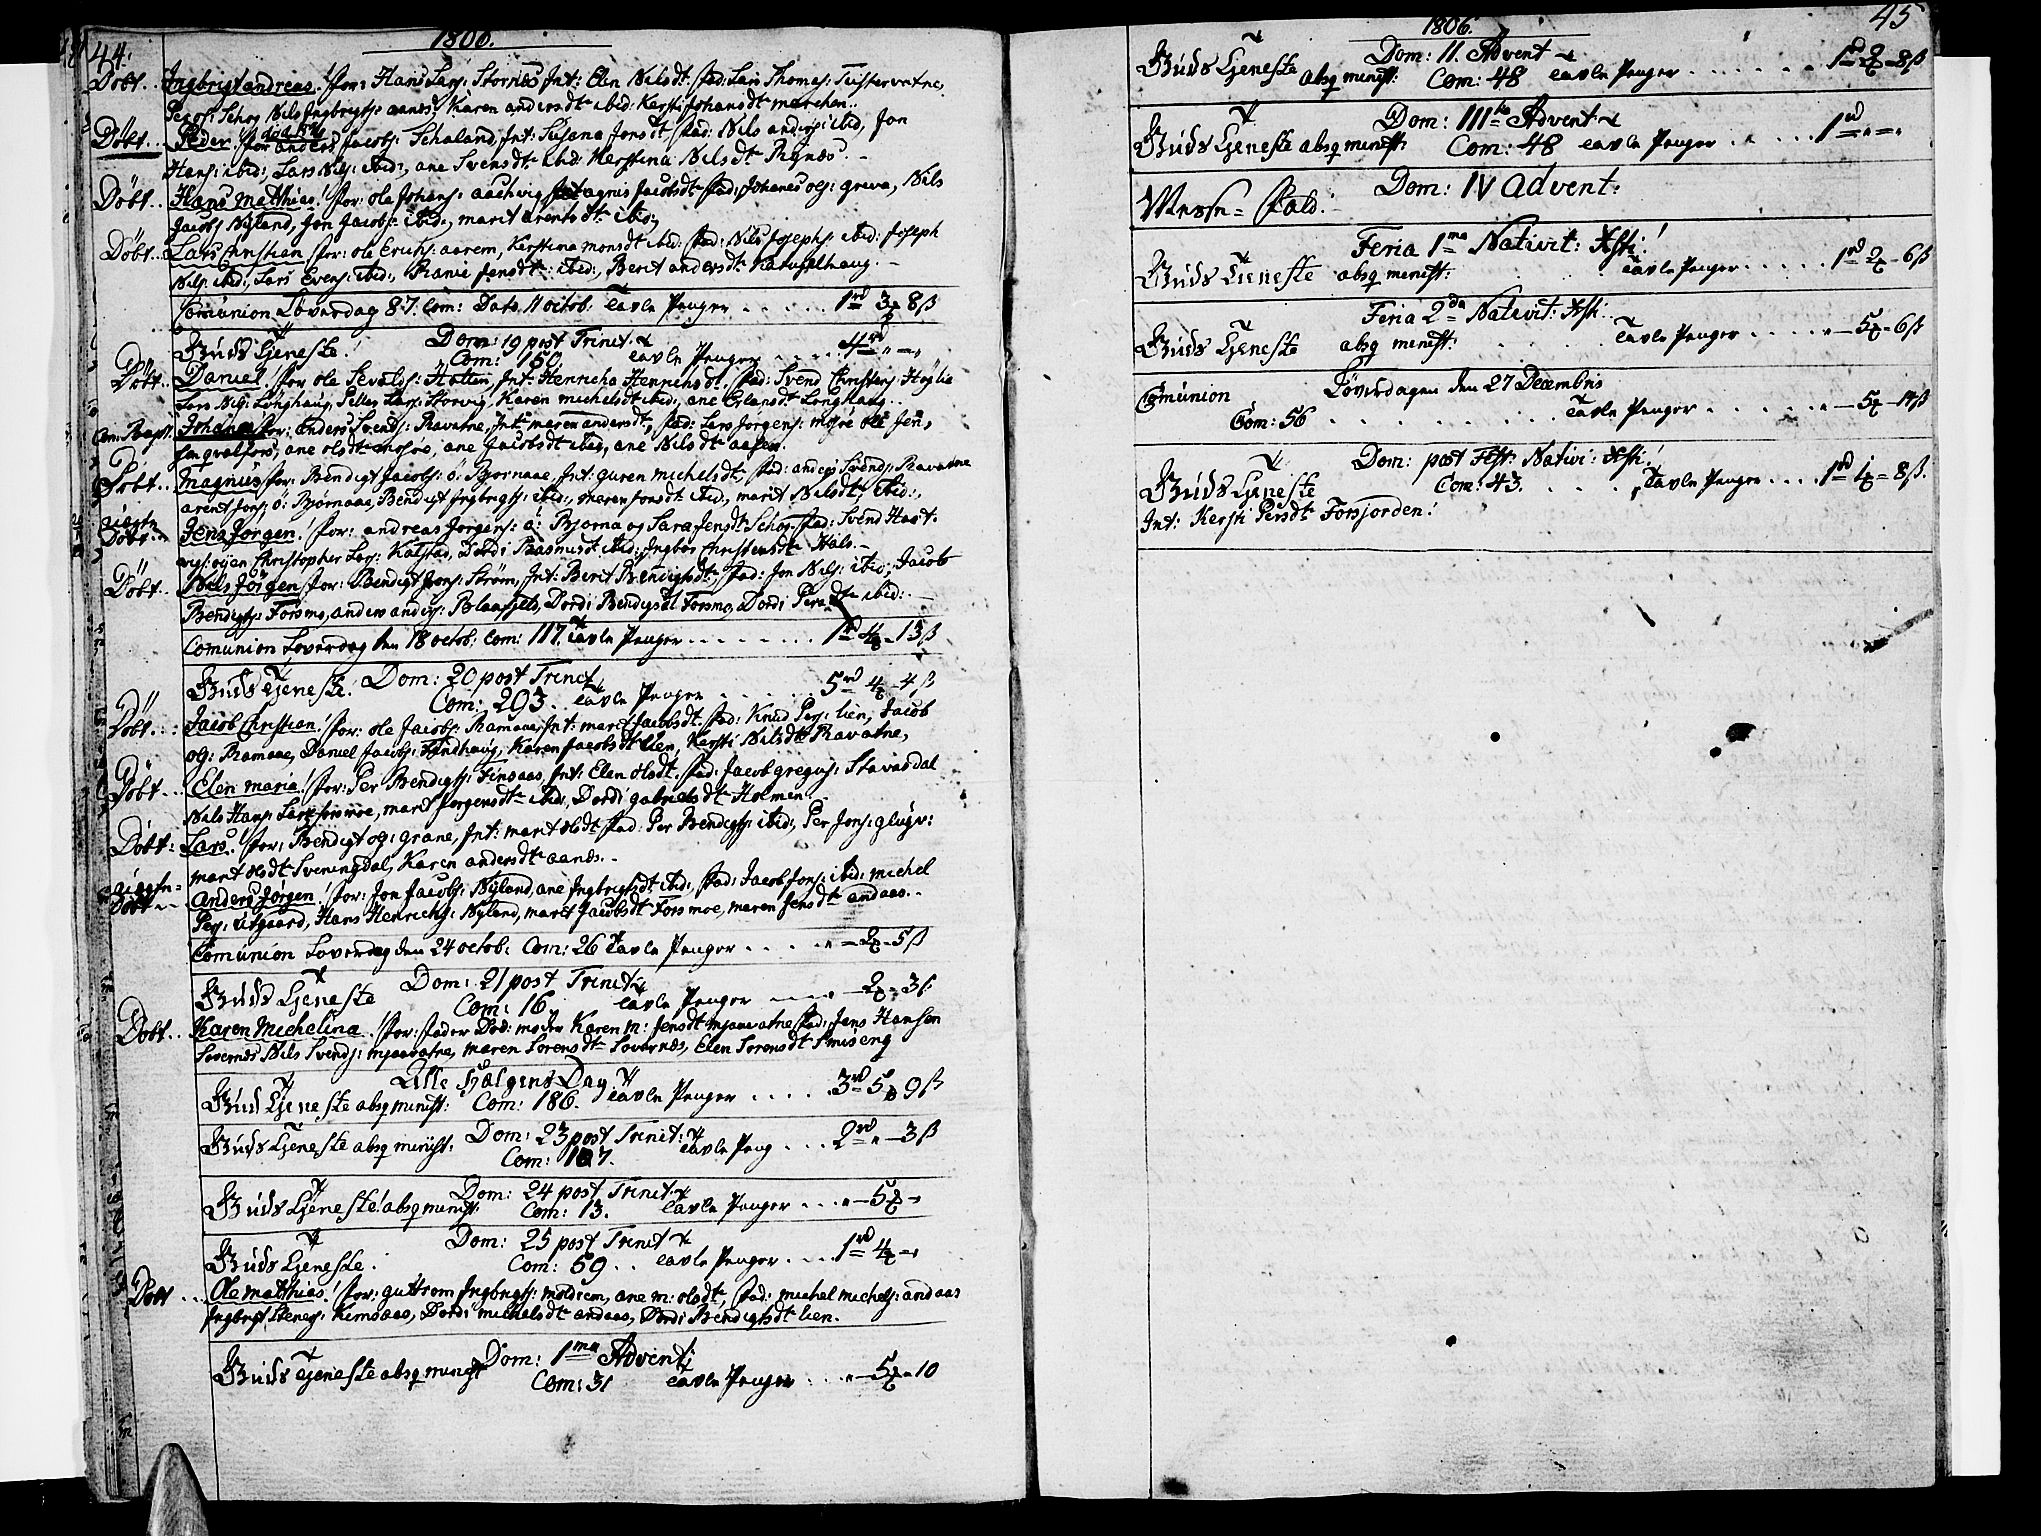 44.
1806.
Döbt.. Ingbrigt andreas! /For: Hans Lars: Stornes Int: Elen Nilsdt. fad: Lars Thomas: Tustervatne,
Per os: Schog Nils Ingbrigts: aanes, Karen andersdt ibid: Kersti Johansdt marchen..
Döbt.. Peder! /For anders Jacobs: Schaland, Int: Susana Jonsdt, fad: Nils anders: ibid, Jon
Hans: ibid:, Lars Nils: ibid:, ane Svensdt ibid: Kerstina Nilsdt Rynes. –
Döbt.. Hans Matthias! /For: ola Johans: Int agnis Jacobsdt fad: Johanes ols: greva, Nils
Jacobs Nyland, Jon Jacobs: ibid:, marit arentsdt ibid:,
Döbt.. Lars Christian /For: ole Erichs: aarem, Kerstina monsdt ibid: fad: Nils Josephs: ibid: Joseph
Nils: ibid:, Lars Evens: ibid:, Ranie Jensdt: ibid:, Berit andersdt –
Comunion Löverdag 87. Com: Dats. 11 octob: Tavle Penger . . . . . 1rd 3 8ß
Guds Tjeneste! Dom: 19 post Trinit.
Com: 160 tavle Penger . . . . . 4rd „ –„
Döbt.. Daniel! /For ole Sevalds: Holten, Int: Henricha Henrichsdt. fad: Svend Christens: Höglie
Lars Nils: Longhaug, Peller Lars: Storvig, Karen michelsdt ibid:, ane Erlansdt Longhaug. .
Con: Bapt. Johana /For: anders Svends: Ravatne, Int: maren andersdt, fad: Lars Jörgens: mosöe ole Jen,
sen qvalfors, ane olsdt mosöe, ane Jacobsdt ibid, ane Nilsdt aasen.
Döbt.. Magnus /For: Bendigt Jacobs: ö: Bjornaae, Int: guren michelsdt, fad: anders Svends: Ravatne
arent Jons: ö: Björnaae, Bendigt Ingbrigts: ibid:, maren Jonsdt ibid, marit Nilsdt, ibid:,
Döbt.. Jens Jörgen! /For: andreas Jörgens: ö: Bjorna og Sara Jensdt Schog. fad: Svend Hart-
vigs: oijen Christopher Lars: Kalstad, Dordi Rasmusdt ibid: Ingbor Christensdt Hals –
Döbt.. Nils Jörgen /For: Bendigt Jons: Ström, Int: Berit Bendigtsdt, fad: Jon Nils: ibid:, Jacob
Bendigts: Forsmo, anders anders: Blaafjeld, Dordi Bendigsdt Forsmo, Dordi Persdt ibid:. –
Comunion Loverdag den 18 octob: Com: 117. Tavle Penger . . . . . . . . 1rd 4 – 13ß
Guds Tjeneste! Dom: 20 post Trinit
Com: 203. . tavle Penger . . . . . . 5rd 4 – 4ß
Döbt... Jacob Christian! /For: ole Jacobs: Ramaae, Int: marit Jacobsdt. fad: Knud Pers: lien, Jacob
ols: Ramaae, Daniel Jacobs: Fandhaug, Karen Jacobsdt lien, Kersti Nilsdt Ravatne,
Döbt... Elen maria! /For: Per Bendigts: Finsaas, Int: Elen olsdt. fad: Jacob gregus: Stavasdal
Nils Hans: Lars forsmoe, marit Jorgensdt ibid, Dordi gabrielsdt Holmen –
Döbt: Lars! /For: Bendigt ols: grane, Int: marit olsdt fad: Per Bendigts: ibid:, Per Jons:
marit olsdt Sveningdal, Karen andersdt aanes. –
Döbt .. Anders Jörgen! /For: Jon Jacobs: Nyland, ane Ingbrigtsdt ibid:, fad: Jacob Jons: ibid: michel
Pers: utgaard, Hans Henrichs: Nyland, marit Jacobsdt Forsmoe, maren Jensdt andaas..
Comunion Loverdag den 24 octob: Com: 26 Tavle Penger . . . . . „ – 2 – 5ß
Guds Tjeneste Dom: 21 post Trinit
Com: 16. tavle Penger . . . . . . – 2 – 3ß
Döbt.. Karen Michelina. /For: fader Död: moder Karen m: Jensdt mjaavatne fad: Jens Hansen
Soverneß Nils Svends: mjaavatne, maren Sorensdt Sovernæs, Elen Sorensdt Smiseng
Alle Hælgens Dag.
Guds Tjeneste absq minist: Com: 186. tavle Penger . . . . . 3rd 5 9ß
Guds Tjeneste absq minist: Dom: 23 post Trinit:
Com: 107. tavle Peng . . . 2rd „ – 3ß
Guds Tjeneste! absq minist: Dom: 24 post Trinit.
Com: 13. tavle Penger . . . „ – 5 –
Guds Tjeneste. Dom: 25 post Trinit
Com: 69 . . tavle Penger . . . 1rd 4 –
Döbt ... Ole matthias! /For: guttrom Ingbrigts: moldrem, ane m: olsdt, fad: michel michels: andaas
Ingbrigt Stenes: Kemsaas, Dordi michelsdt andaas, Dordi Bendigtsdt lien.
Guds Tjeneste absq minist Dom: 1ma Advent:
Com: 31 tavle Penger . . . „ – 5 – 10
45
1806.
Guds Tjeneste absq minist: Dom: 11. Advent
Com: 48 tavle Penger . . . . . . . 1rd 2 – 8ß
Guds Tjeneste absq minist: Dom: IIItia Advent
Com: 48 tavle Penger . . . . . 1rd –„–„
Messe = Fald. Dom: IV Advent:
Feria 1ma Nativit: Xsti!
Guds Tjeneste absq minist: Tavle Penger . . . . . 1rd 2 – 6ß
Feria 2da Nativit: Xsti
Guds Tjeneste absq minist: Tavle Penger . . . . . „ – 5 – 6ß
Comunion Löverdagen den 27 Decembris
Com: 56 . . . . . . . . . . Tavle Penger . . . . . . . „ – 5 – 14ß
Dom: post Fest: Nativi: Xsti!
Guds Tjeneste Com: 43. . . . . Tavle Penger . . . . 1rd 1 – 8ß.
Int: Kersti Persdt Forsjorden!